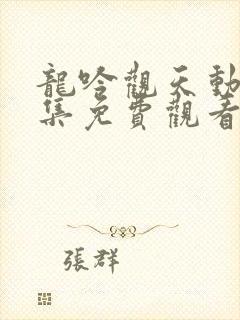 龍吟觀天動
集免費觀看
張群